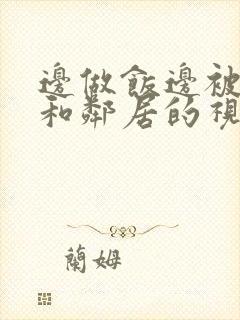 邊做飯邊被
和鄰居的視
蘭姆